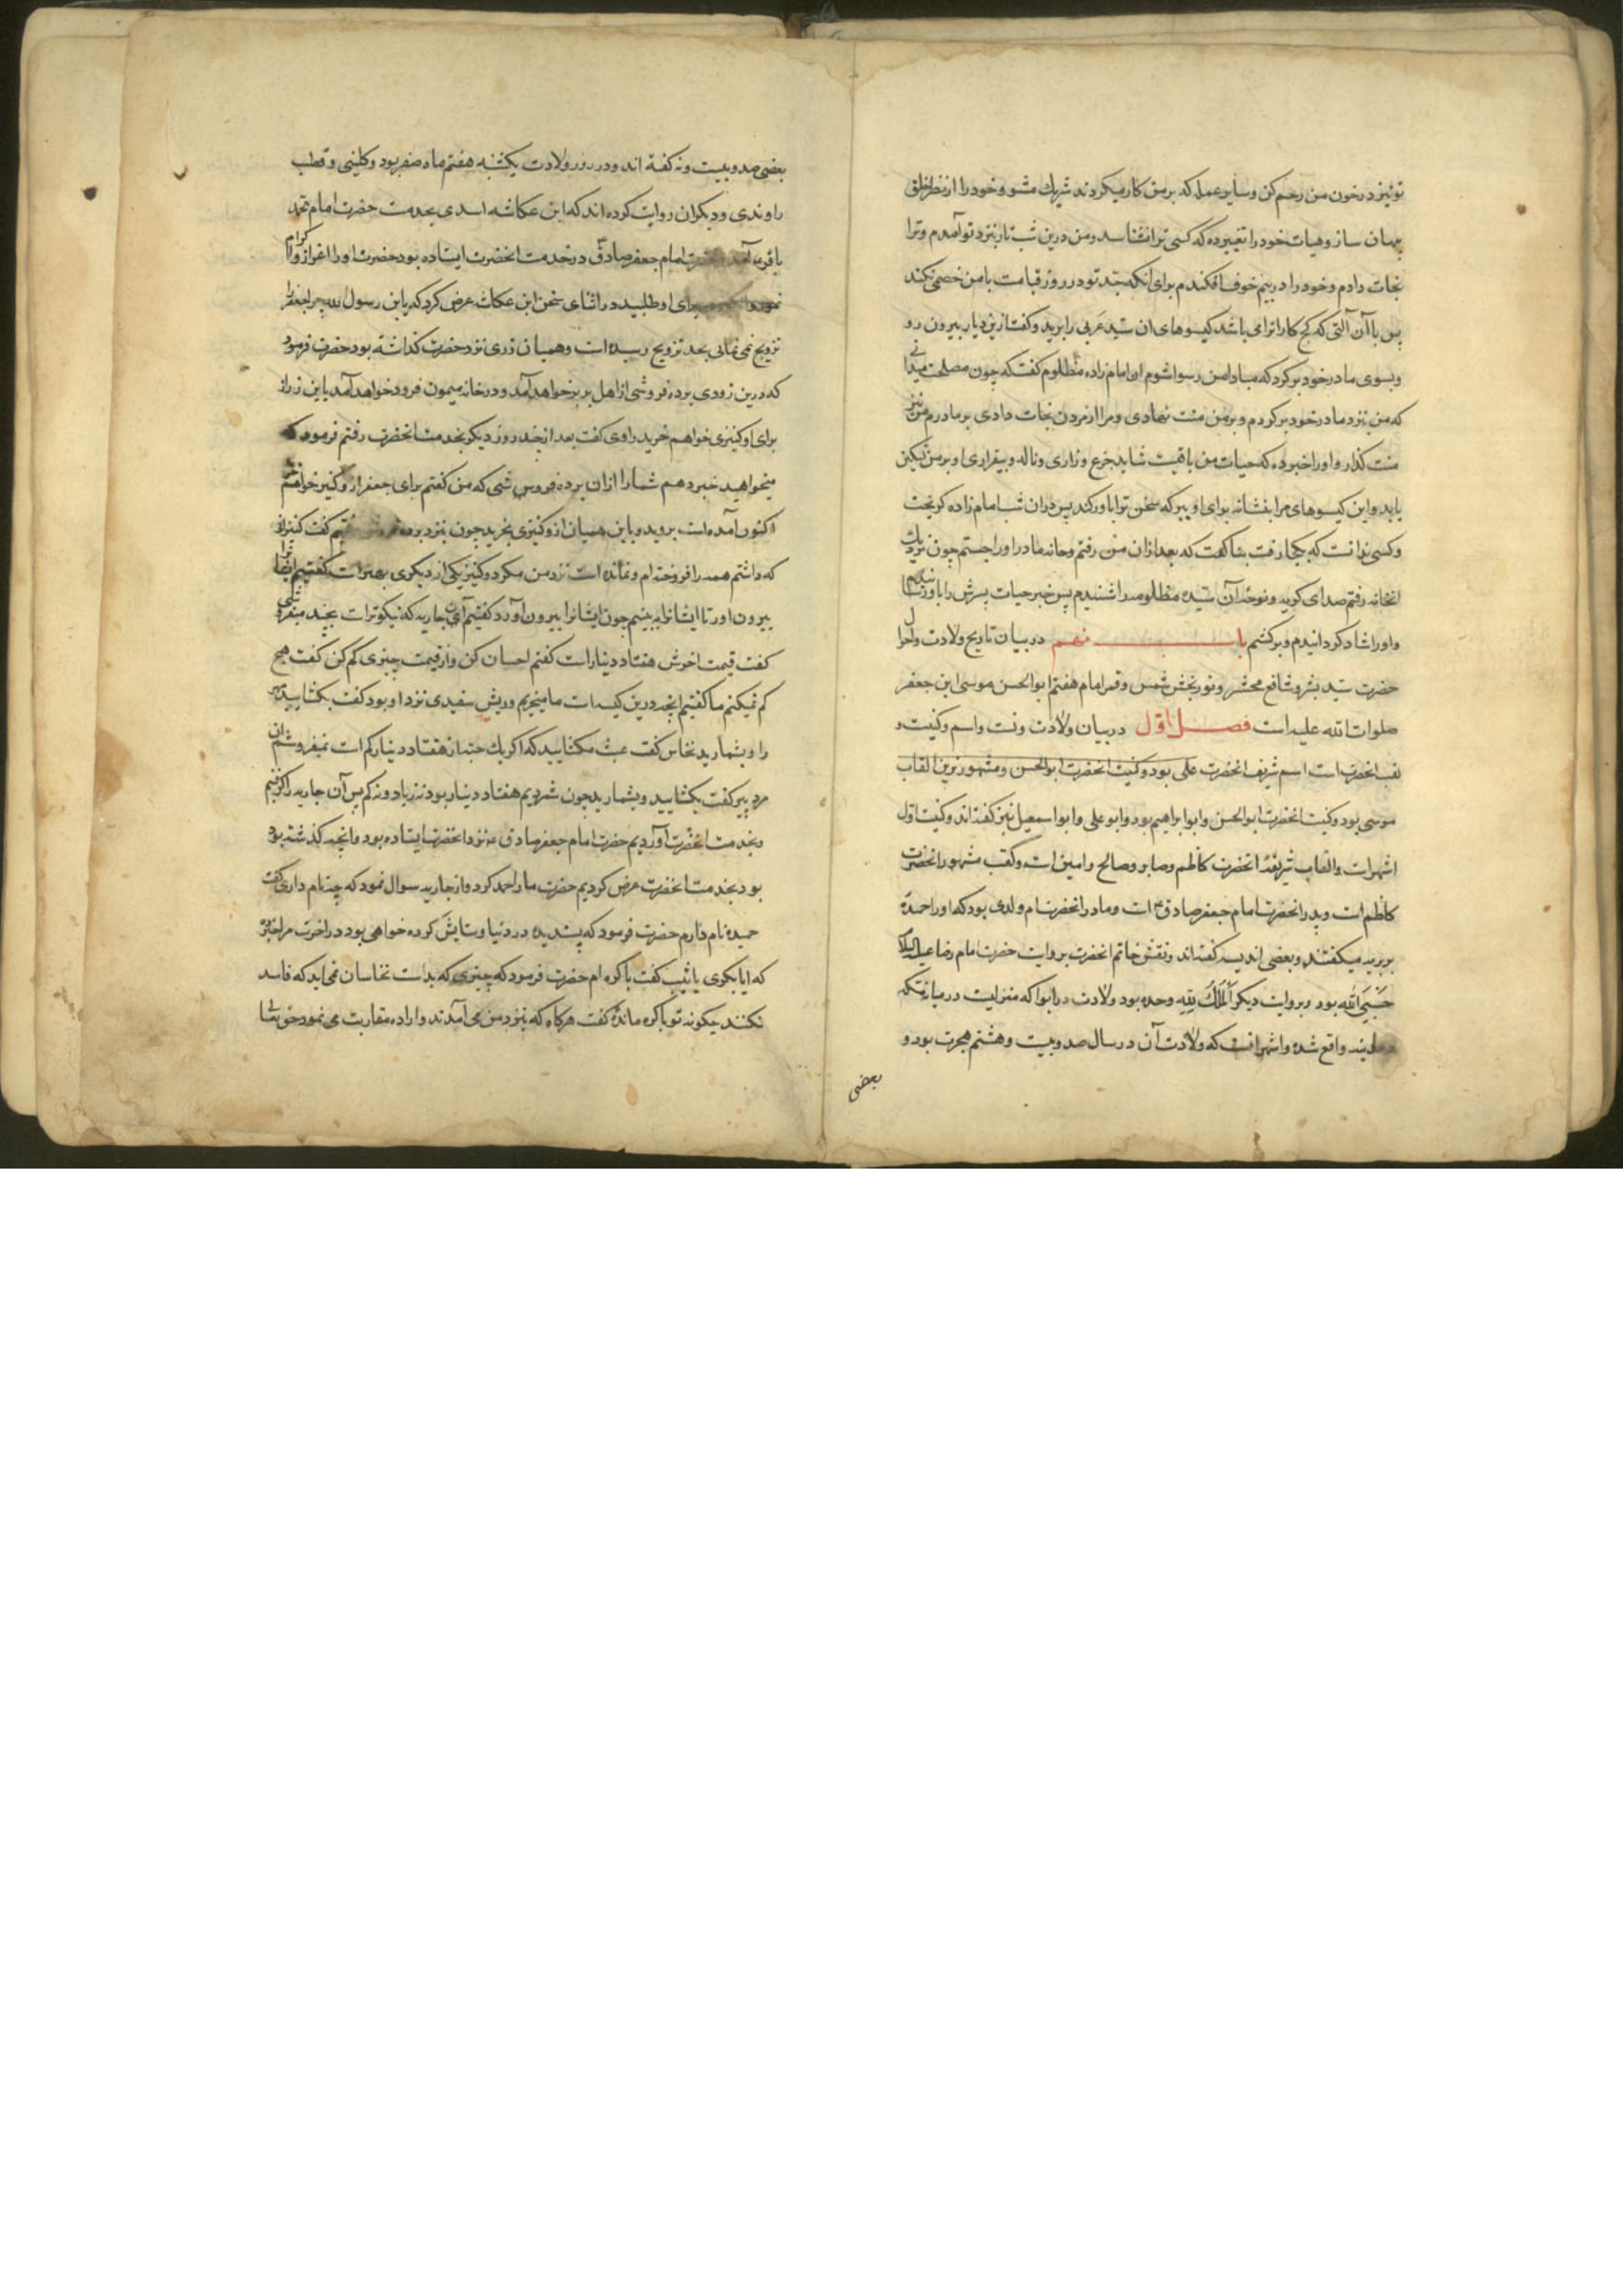 تو نیز در خون من رحم کن و سایر عمله که بر من کار میکردند شریک مشو و خود را از نظر خلق
پنهان ساز و هیات خود را تغییر ده که کسی ترا نشناسد و من درین شب تار بنزد تو آمدم و ترا
نجات دادم و خود را در بیم خوف افکندم برای انکه جد تو در روز قیامت با من خصمی نکند
پس با آن آلتی که کج کارانرا می باشد کیسوهای ان سید عربی را برید و کفت ازین دیار بیرون رو
و بسوی مادر خود بر مکرد که مبادا من رسوا شوم ان امام زاده مظلوم کفت که چون مصلحت نمیدانی
که من بنزد مادر خود بر کردم و بر من منت نهادی و مرا از مردن نجات دادی بر مادرم نیز
منت کذار و او را خبر ده که حیات من باقیست شاید جزع و زاری و ناله و بیقراری او بر من تسکین
یابد و این کیسوهای مرا بنشانه برای او ببر که سخن ترا باور کند پس در ان شب امام زاده کریخت
و کسی ندانست که بکجا رفت بنا کفت که بعد از ان من رفتم و خانه مادر او را جستم چون نزدیک
انخانه رفتم صدای کریه و نوحه آن سیده مظلومه را شنیدم پس خبر حیات پسرش را باو رسانیدم
و او را شاد کردانیدم و برکشتم باب نهم در بیان تاریخ ولادت و احوال
حضرت سید بشر و شافع محشر و نور بخش شمس و قمر امام هفتم ابو الحسن موسی ابن جعفر
صلوات الله علیه است فصل اول در بیان ولادت و نسب و اسم و کنیت و
لقب انحضرت است اسم شریف انحضرت علی بود و کنیت انحضرت ابو الحسن و مشهورترین القاب
موسی بود و کنیت انحضرت ابو الحسن و ابو ابراهیم بود و ابو علی و ابو اسمعیل نیز کفته اند و کنیت اول
اشهر است و القاب شریفه انحضرت کاظم و صابر و صالح و امین است و لقب مشهور انحضرت
کاظم است و پدر انحضرت امام جعفر صادق ع است و مادر انحضرت ام ولدی بود که او را حمیده
بربریه میکفتند و بعضی اندلسیه کفته اند و نقش خاتم انحضرت بروایت حضرت امام رضا علیه السلام
حَسْبِیَ الله بود و بروایت دیکر اَلْمُلْکُ لِلّهِ وحده بود ولادت در ابوا که منزلیست در میان مکه
و مدینه واقع شده و اشهر انست که ولادت آن در سال صد و بیست و هشتم هجرت بود و
بعضی
بعضی صد و بیست و نه کفته اند و در روز ولادت یکشنبه هفتم ماه صفر بود و کلینی و قطب
راوندی و دیکران روایت کرده اند که ابن عکاشه اسدی بخدمت حضرت امام محمد
باقر ع آمد و حضرت امام جعفر صادق ع در خدمت انحضرت ایستاده بود حضرت او را اعزاز و اکرام
نمود و برای او طلبید در اثنای سخن ابن عکاشه عرض کرد که یا بن رسول الله چرا جعفر را
تزویج نمی نمائی بحد تزویج رسیده است و همیان زری نزد حضرت کذاشته بود حضرت فرمود
که درین زودی برده فروشی از اهل بربر خواهد آمد و در خانه میمون فرود خواهد آمد باین زر از
برای او کنیزی خواهم خرید راوی کفت بعد از چند روز دیکر بخدمت انحضرت رفتم فرمود که
میخواهید خبر دهم شما را از ان برده فروشی که من کفتم برای جعفر از او کنیز خواهم
اکنون آمده است بروید و باین همیان از و کنیزی بخرید چون بنزد برده فروش رفتیم کفت کنیزانی
که داشتم همه را فروخته ام و نمانده است نزد من مکر دو کنیز یکی از دیکری بهتر است کفتیم ایشانرا
بیرون اور تا ایشانرا ببینیم چون ایشانرا بیرون آورد کفتیم آن جاریه که نیکوتر است بچند میفروشی
کفت قیمت اخرش هفتاد دینار است کفتم احسان کن و از قیمت چیزی کم کن کفت هیچ
کم نمیکنم ما کفتیم انچه درین کیسه است ما میخریم و ریش سفیدی نزد او بود کفت بکشایید مهر
را و بشمارید نخاس کفت عبث مکشایید که اکر یک حبه از هفتاد دینار کم است نمیفروشم ان
مرد پیر کفت بکشایید و بشمارید چون شمردیم هفتاد دینار بود نه زیاد و نه کم پس آن جاریه را کرفتیم
و بخدمت انحضرت آوردیم حضرت امام جعفر صادق ع نزد انحضرت ایستاده بود و انچه کذشته بود
بود بخدمت انحضرت عرض کردیم حضرت ما را حمد کرد و از جاریه سوال نمود که چه نام داری کفت
حمیده نام دارم حضرت فرمود که پسندیده در دنیا و ستایش کرده خواهی بود در اخرت مرا خبر ده
که ایا بکری یا ثیب کفت باکره ام حضرت فرمود که چیزی که بدست نخاسان نمی اید که فاسد
نکنند چکونه تو باکره مانده کفت هرکاه که بنزد من می آمدند و اراده مقاربت می نمود حق تعالی